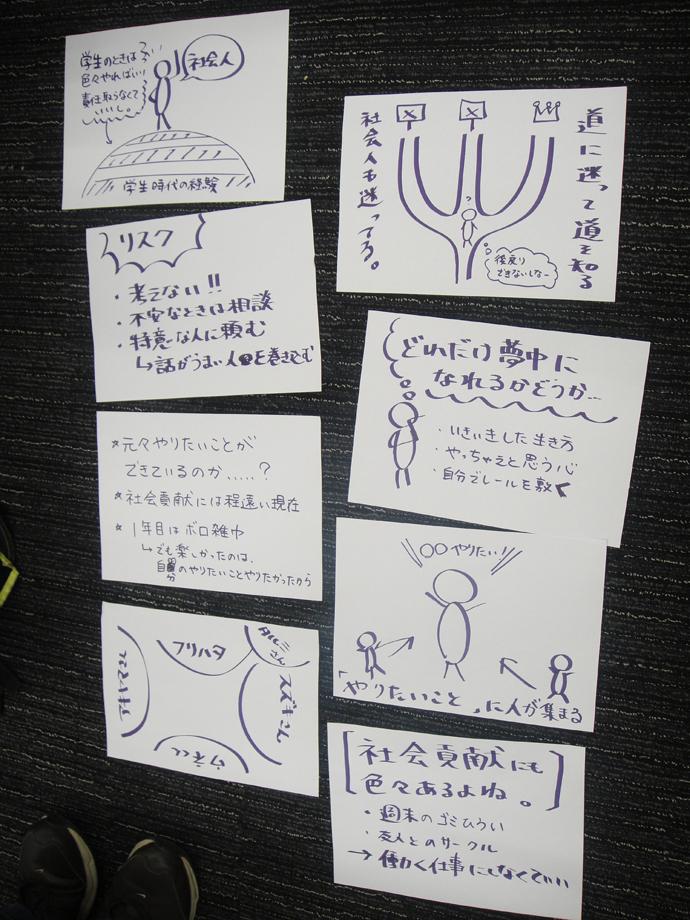 学生のときは
色々やればいい
責任取らなくて
いいし。
社会人
学生時代の経験
リスク
・考えない!!
・不安なときは相談
・得意な人に頼む
↳話がうまい人を巻き込む
*元々やりたいことが
できているのか.....?
*社会貢献には程遠い現在
*1年目はボロ雑巾
↳でも楽しかったのは、
自分のやりたいことやりたかったから
フリハタ
タルミさん
スズキさん
道に迷って道を知る
社会人も迷ってる。
X
X
?
後戻り
できないしなー
どれだけ夢中に
なれるかどうか...
・いきいきした生き方
・やっちゃえと思う心
・自分でレールを敷く
〇〇やりたい!!
「やりたいこと」に人が集まる
[社会貢献にも
色々あるよね。]
・週末のゴミひろい
・友人とのサークル
→働かく仕事にしなくていい